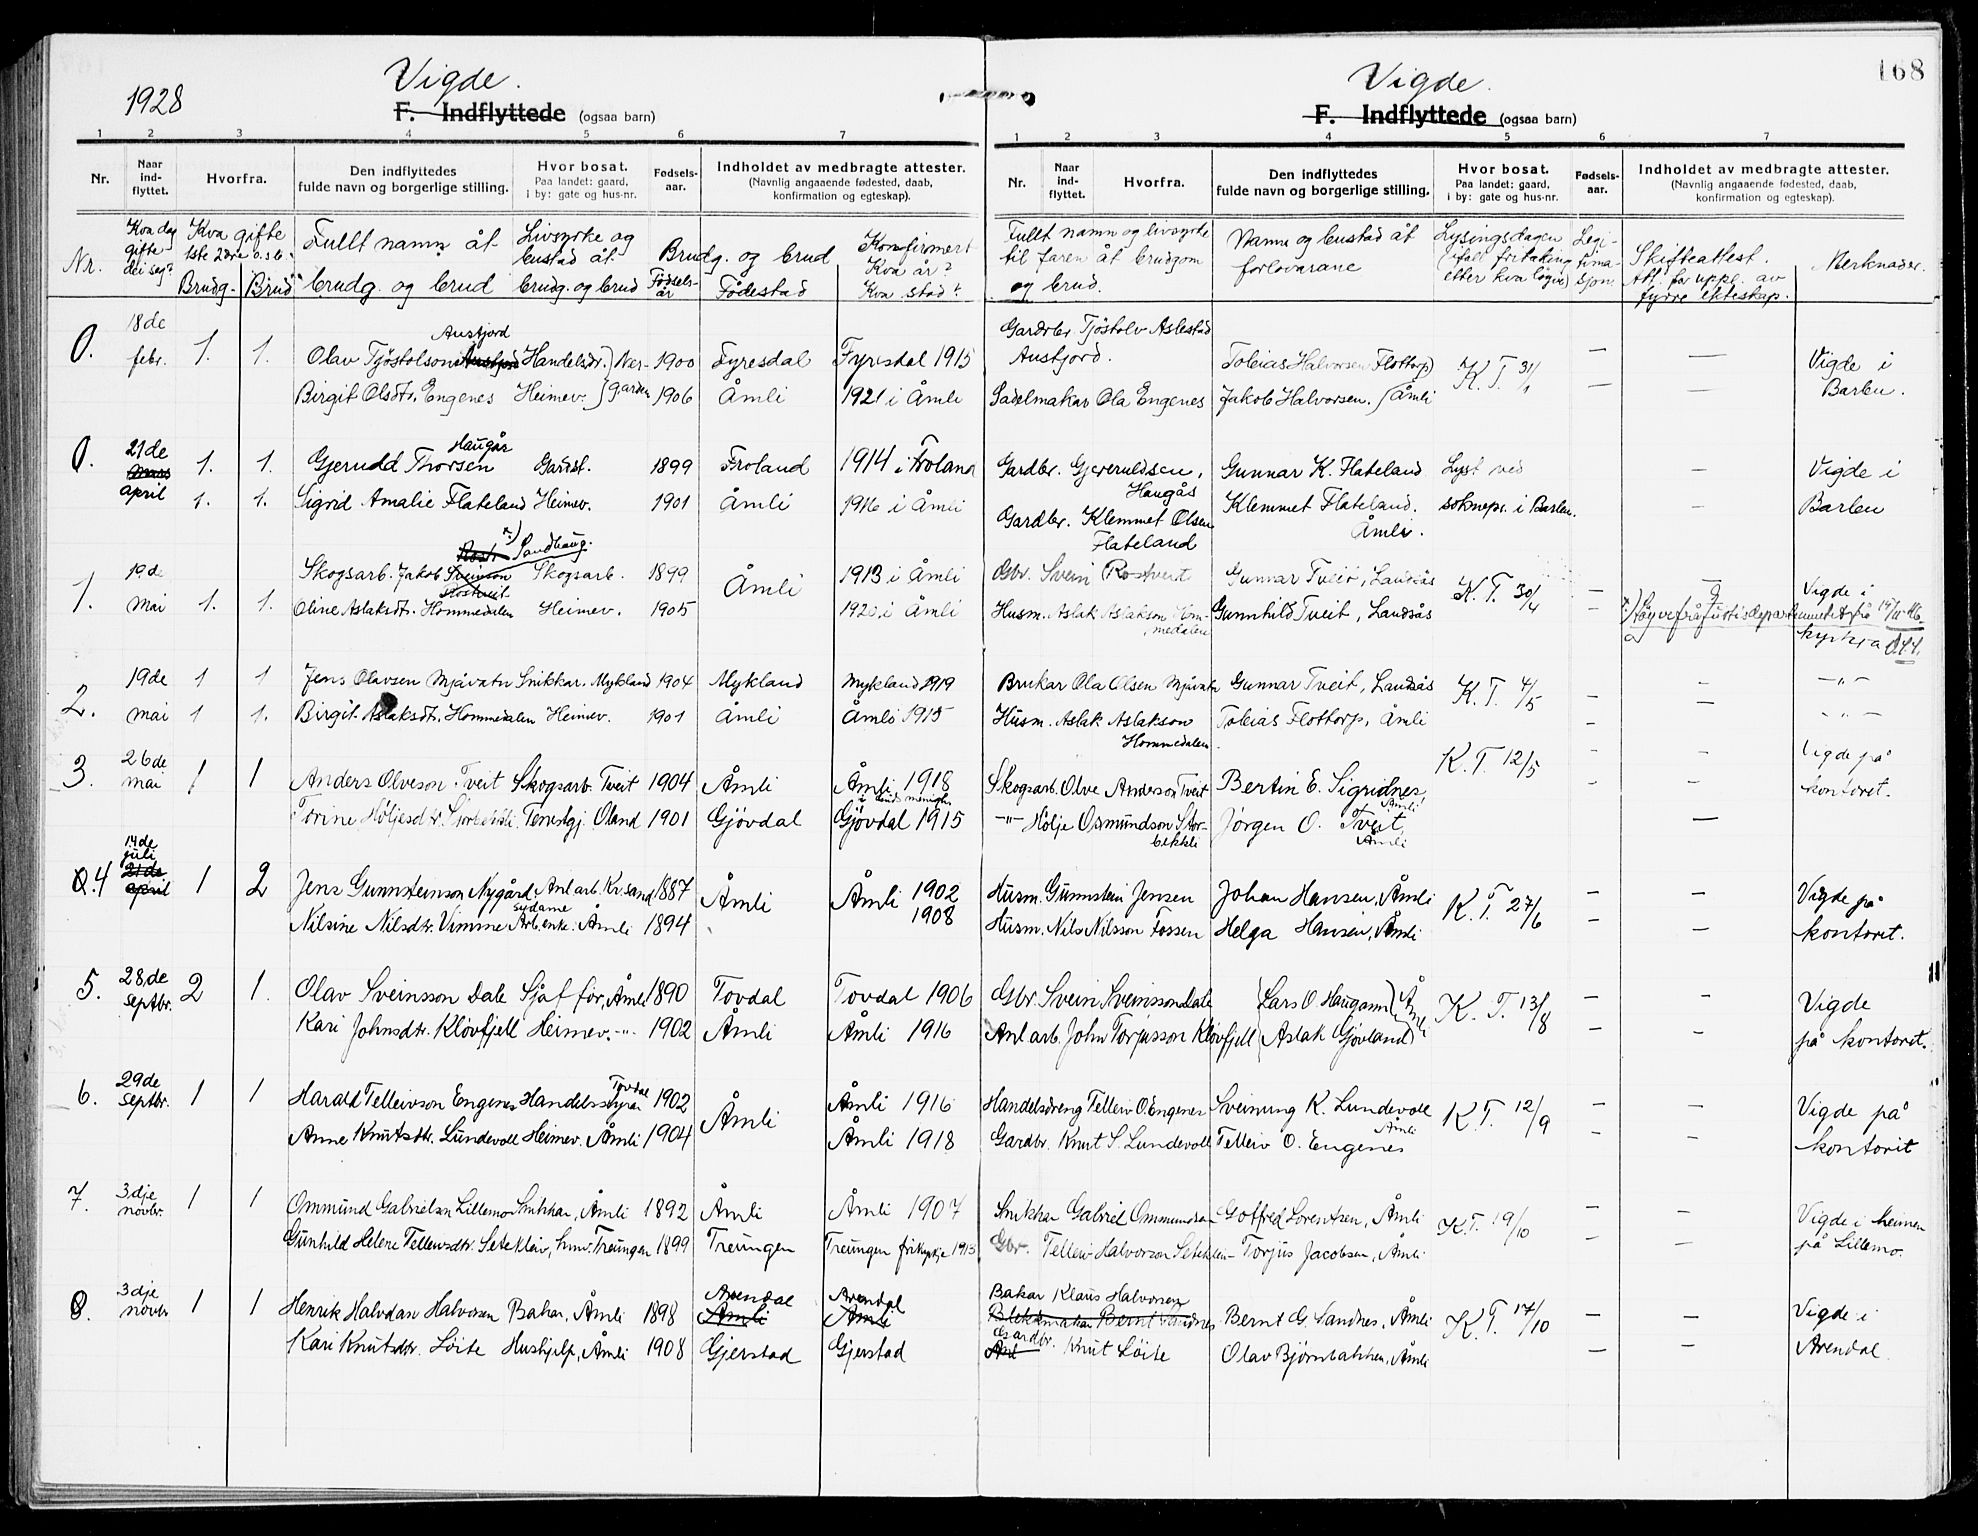 168
1928
Vigde.
F. Indflyttede (ogsaa barn)
1 2 3 4 5 6 7
Nr. Naar ind-flyttet. Hvorfra. Den indflyttedes fulde navn og borgerlige stilling. Hvor bosat. Paa landet: gaard, i by: gate og hus-nr. Fødsels-aar. Indholdet av medbragte attester. (Navnlig angaaende fødested, daab, konfirmation og egteskap).
Nr. Kva dag gifte dei seg? Kva gifte 1ste 2dre o.s.b. Brudg- Brud Fullt namn åt brudg. og brud Livsyrke og bustad åt brudg. og brud Brudg. og brud Fødsels-år Fødestad Konfirmert Kva år? Kva stad?
0. 18de febr. 1. 1. Olav Tjøstolson Austjord Handelsdr. Ner- 1900 Fyresdal Fyresdal 1915
Birgit Olsdtr. Engenes Heimev. garden 1906 Åmli 1921 i Åmli
0. 21de mars april 1. 1. Gjerudd Thorsen Haugås Gardst. 1899 Froland 1914 i Froland
1. 1. Sigrid Amalie Flateland Heimev. 1901 Åmli 1916 i Åmli
1. 19de mai 1. 1. Skogsarb. Jakob Sveinson Sandhaug. Skogsarb. 1899 Åmli 1913 i Åmli
Oline Aslaksdtr. Hommedalen Heimev. 1905 1920 i Åmli
2. 19de mai 1 1 Jens Olavsen Mjåvatn Snikkar. Mykland 1904 Mykland Mykland 1919
1 1. Birgit Aslaksdt. Hommedalen Heimev. 1901 Åmli Åmli 1915
3. 26de mai 1 1 Anders Olveson Tveit Skogsarb. Tveit 1904 Åmli Åmli 1918
Torine Høljesdtr. Tenestgj. Oland 1901 Gjövdal Gjövdal 1915
0.4 14de juli 21de april 1 2 Jens Gunnsteinson Nygård Anl. arb. Kr.sand 1887 Åmli Åmli 1902
Nilsine Nilsdtr. Vimme sydame Arb.enke. Åmli 1894 1908
5. 28de septbr. 2 1. Olav Sveinsson Dale Sjåfför, Åmli 1890 Tovdal Tovdal 1906
Kari Johnsdtr. Klövfjell Heimev. -"- 1902 Åmli Åmli 1916
6. 29de septbr. 1 1 Harald Telleivson Engenes Handelsstyrar Tovdal 1902 Åmli Åmli 1916
Anne Knutsdtr. Lundevoll Heimev. Åmli 1904 Åmli 1918
7. 3dje novbr. 1 1 Ommund Gabrielsn Lillemo Snikkar, Åmli 1892 Åmli Åmli 1907
Gunhild Helene Telleivsdtr. Setekleiv, hmv. Treungen 1899 Treungen Treungen frikyrkje 1913
8. 3dje novbr 1 1 Henrik Halvdan Halvorsen Bakar, Åmli 1898 Arendal Åmli Arendal Åmli
Kari Knutsdtr. Löite Hushjelp, Åmli 1908 Gjerstad Gjerstad
Vigde.
F. Indflyttede (ogsaa barn)
1 2 3 4 5 6 7
Nr. Naar ind-flyttet. Hvorfra. Den indflyttedes fulde navn og borgerlige stilling. Hvor bosat. Paa landet: gaard, i by: gate og hus-nr. Fødsels-aar. Indholdet av medbragte attester. (Navnlig angaaende fødested, daab, konfirmation og egteskap).
Fullt namn og livsyrke til faren åt brudgom og brud. Namn og bustad åt forlovarane Lysingsdagen (ifall fritaking etter kva løgje) Legi-tima-sjon Skifteattest. Att. for uppl. av fyrre ekteskap. Merknader.
Gardbr. Tjöstolv Aslestad Austjord. Tobias Halvorsen Flottorp K.T. 31/1 — — Vigde i
Sadelmakar Ola Engenes Jakob Halvorsen. Åmli — Barbu.
Gardbr. Gjereruldsen, Haugås Gunnar K. Flateland Lyst ved — Vigde i
Gardbr. Klemmet Olsen Flateland Klemmet Flateland. Åmli. soknepr. i Barbu. — Barbu
Gbr. Svein Rostveit Gunnar Tveit, Landsås K.T. 30/4 — — Vigde i
Husm. Aslak Aslakson Hommedalen Gunnhild Tveit, Landsås — Løyve frå Justisdepartementet frå kyrkja
Brukar Ola Olsen Mjåvatn Gunnar Tveit, Landsås K.T. 4/5 — — -"-
Husm. Aslak Aslakson Hommedalen. Tobias Flottorp, Åmli — — -"-
Skogsarb. Olve Anderson Tveit Bertin E. Sigridnes, Åmli K.T. 12/5 — — Vigde på
-"- Hølje Osmundson Storbekkli Jörgen O. Tveit, Åmli — — kontoret.
Husm. Gunnstein Jensen Johan Hansen, Åmli K.T. 27/6 — — Vigde på
Husm. Nils Nilsson Fossen Helga Hansen, Åmli — — kontoret.
Gbr. Svein Sveinsson Dale Lars O. Haugann Åmli K.T. 13/8 — — Vigde
Anl. arb. John Torjusson Klövfjell Aslak Gjövland — — på kontoret.
Handelsdreng Telleiv O. Engenes Sveinung K. Lundevoll Åmli K.T. 12/9 — — Vigde på
Gardbr. Knut S. Lundevoll Telleiv O. Engenes — — kontorit
Snikkar Gabriel Ommundsen Gotfred Lorentsen, Åmli K.T. 19/10 — — Vigde i heimen
Gbr. Telleiv Halvorson Seteklein Torjus Jacobsen, Åmli — — på Lillemo.
Bakar Klaus Halvorsen
Blekkmakar Bernt Sandnes Bernt G Sandnes, Åmli K.T. 17/10 — — Vigde i
Gardbr. Knut Löite Olav Björnbakken, Åmli — — Arendal.